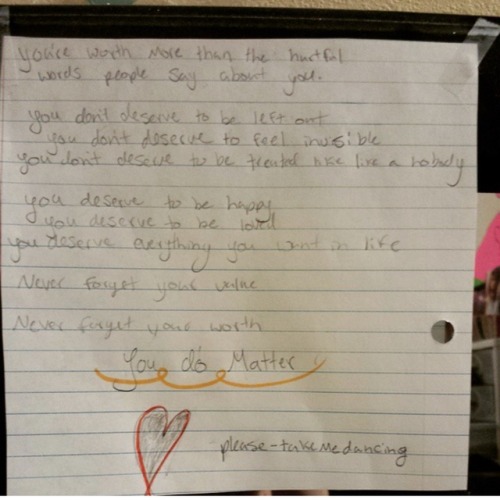 You're worth more than the hurtful
words people say about you.
you don't deserve to be left out
you don't deserve to feel invisible
you don't deserve to be treated like like a nobody
you deserve to be happy
you deserve to be loved
you deserve everything you want in life
Never forget your value
Never forget your worth
You do Matter
please-take me dancing